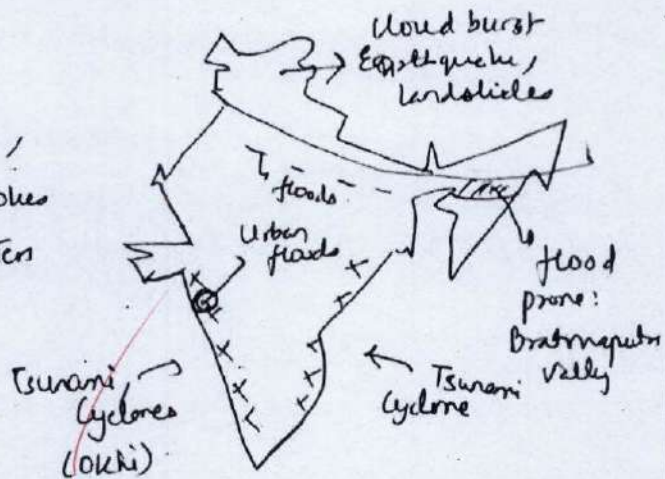 cloud burst
Earthquake,
Landslides
floods
Urban
floods
flood
prone:
Brahmaputra
Valley
Tsunami,
Cyclones
(OKhi)
Tsunami
Cyclone